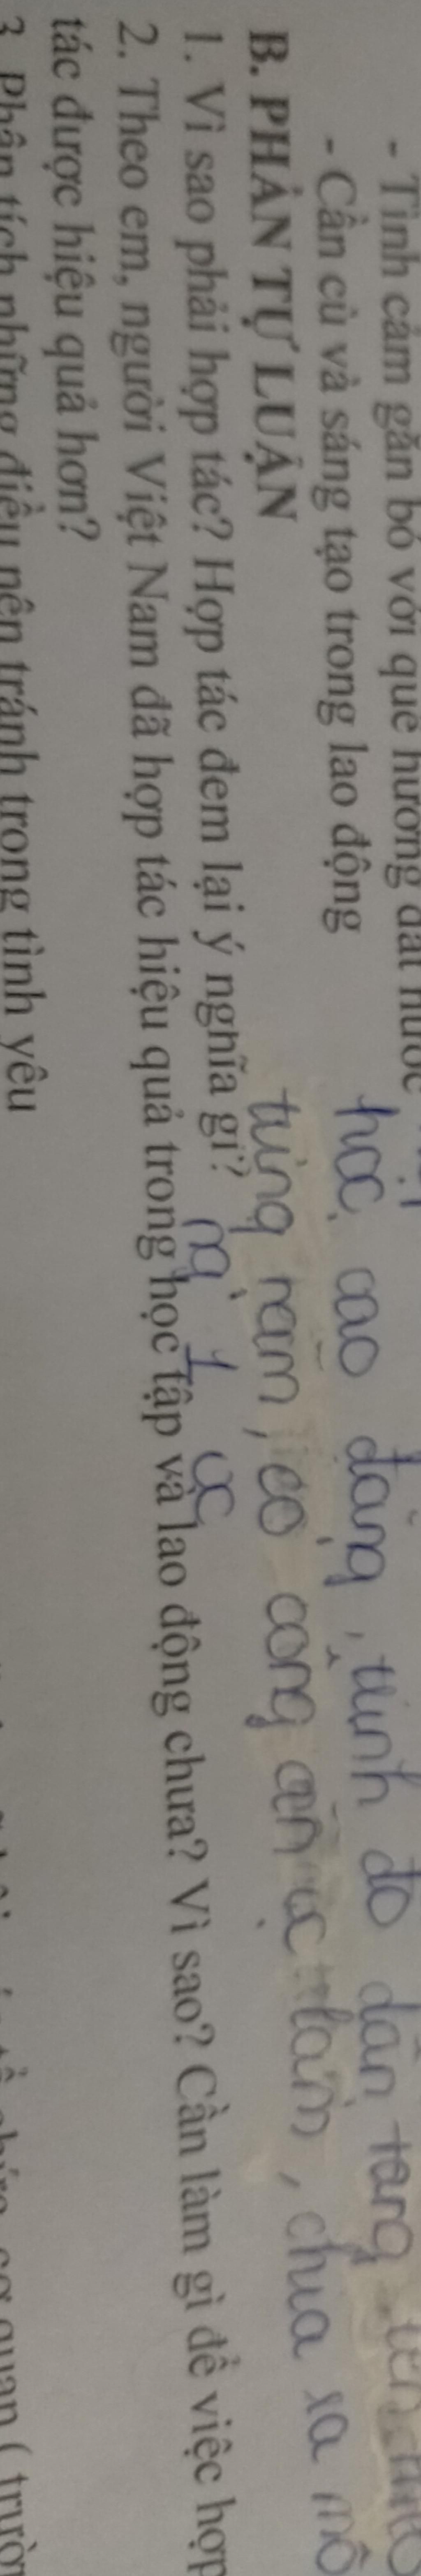 - Tình cảm gắn bó với quê hương đất nước
- Cần cù và sáng tạo trong lao động
học cao đẳng, trình độ dân
B. PHẦN TỰ LUẬN
từng năm, có công ăn việc làm, chưa xa
1. Vì sao phải hợp tác? Hợp tác đem lại ý nghĩa gì?
2. Theo em, người Việt Nam đã hợp tác hiệu quả trong học tập và lao động chưa? Vì sao? Cần làm gì để việc hợp
tác được hiệu quả hơn?
3. Phân tích những điều nên tránh trong tình yêu
cơ quan ( trườn